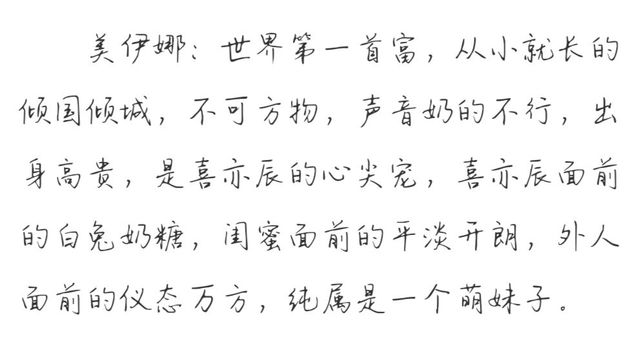 美伊娜：世界第一首富，从小就长的
倾国倾城，不可方物，声音奶的不行，出
身高贵，是喜亦辰的心尖宠，喜亦辰面前
的白兔奶糖，闺蜜面前的平淡开朗，外人
面前的仪态万方，纯属是一个萌妹子。